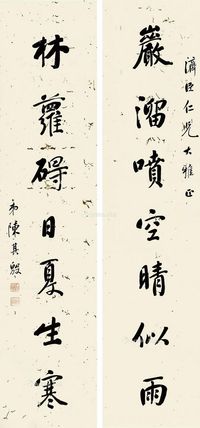 濟臣仁兄大雅正
巖溜噴空晴似雨
林蘿碍日夏生寒
弟陳其殷